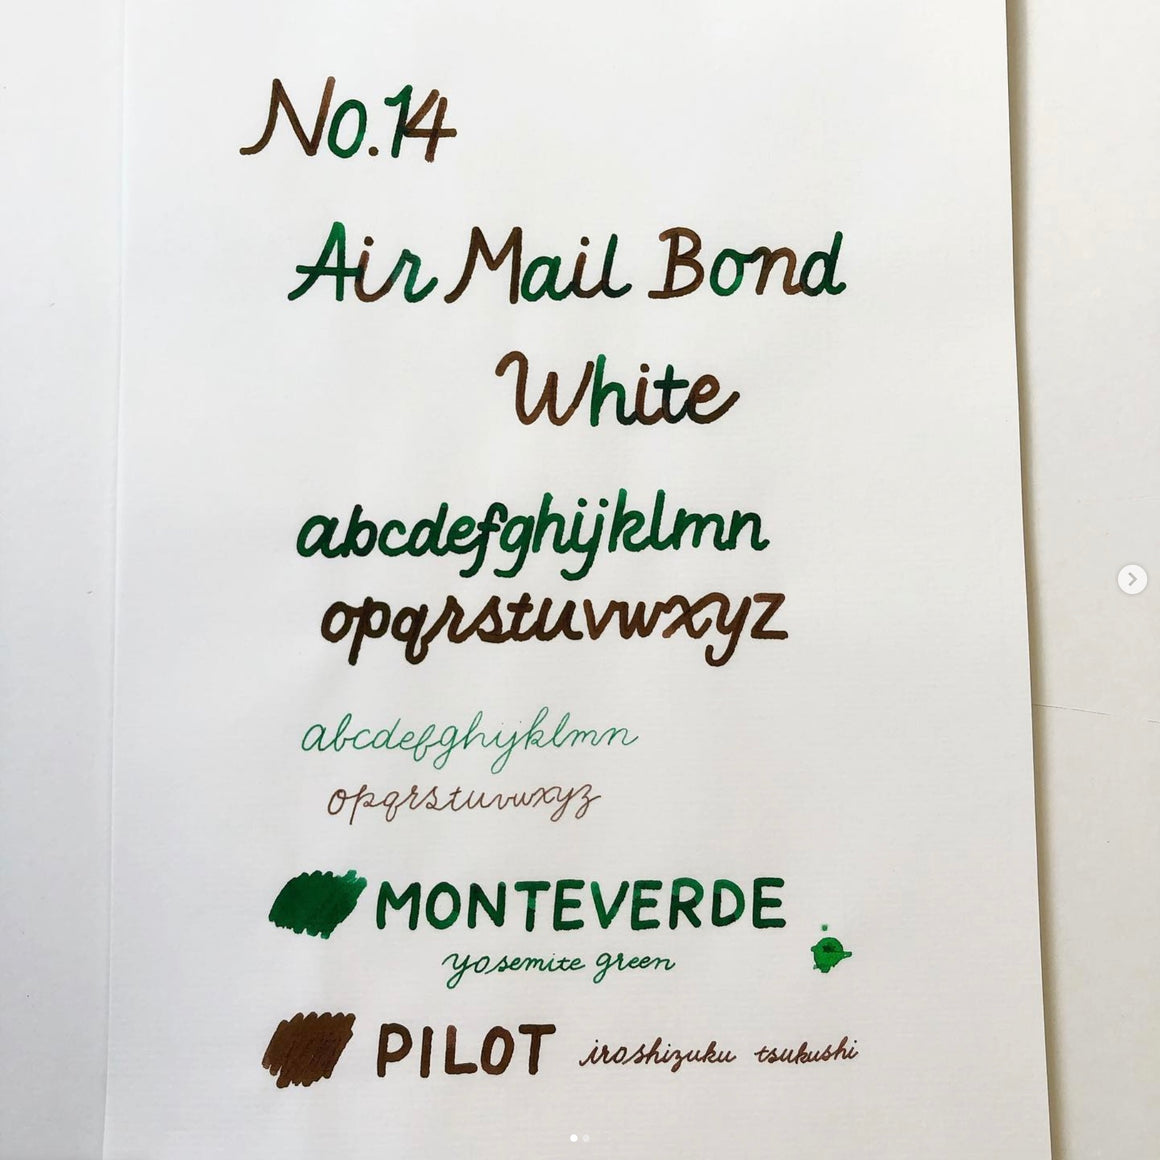 No.14
Air Mail Bond
White
abcdefghijklmn
opqrstuvwxyz
abcdefghijklmn
opqrstuvwxyz
MONTEVERDE
yosemite green
PILOT iroshizuku tsukushi